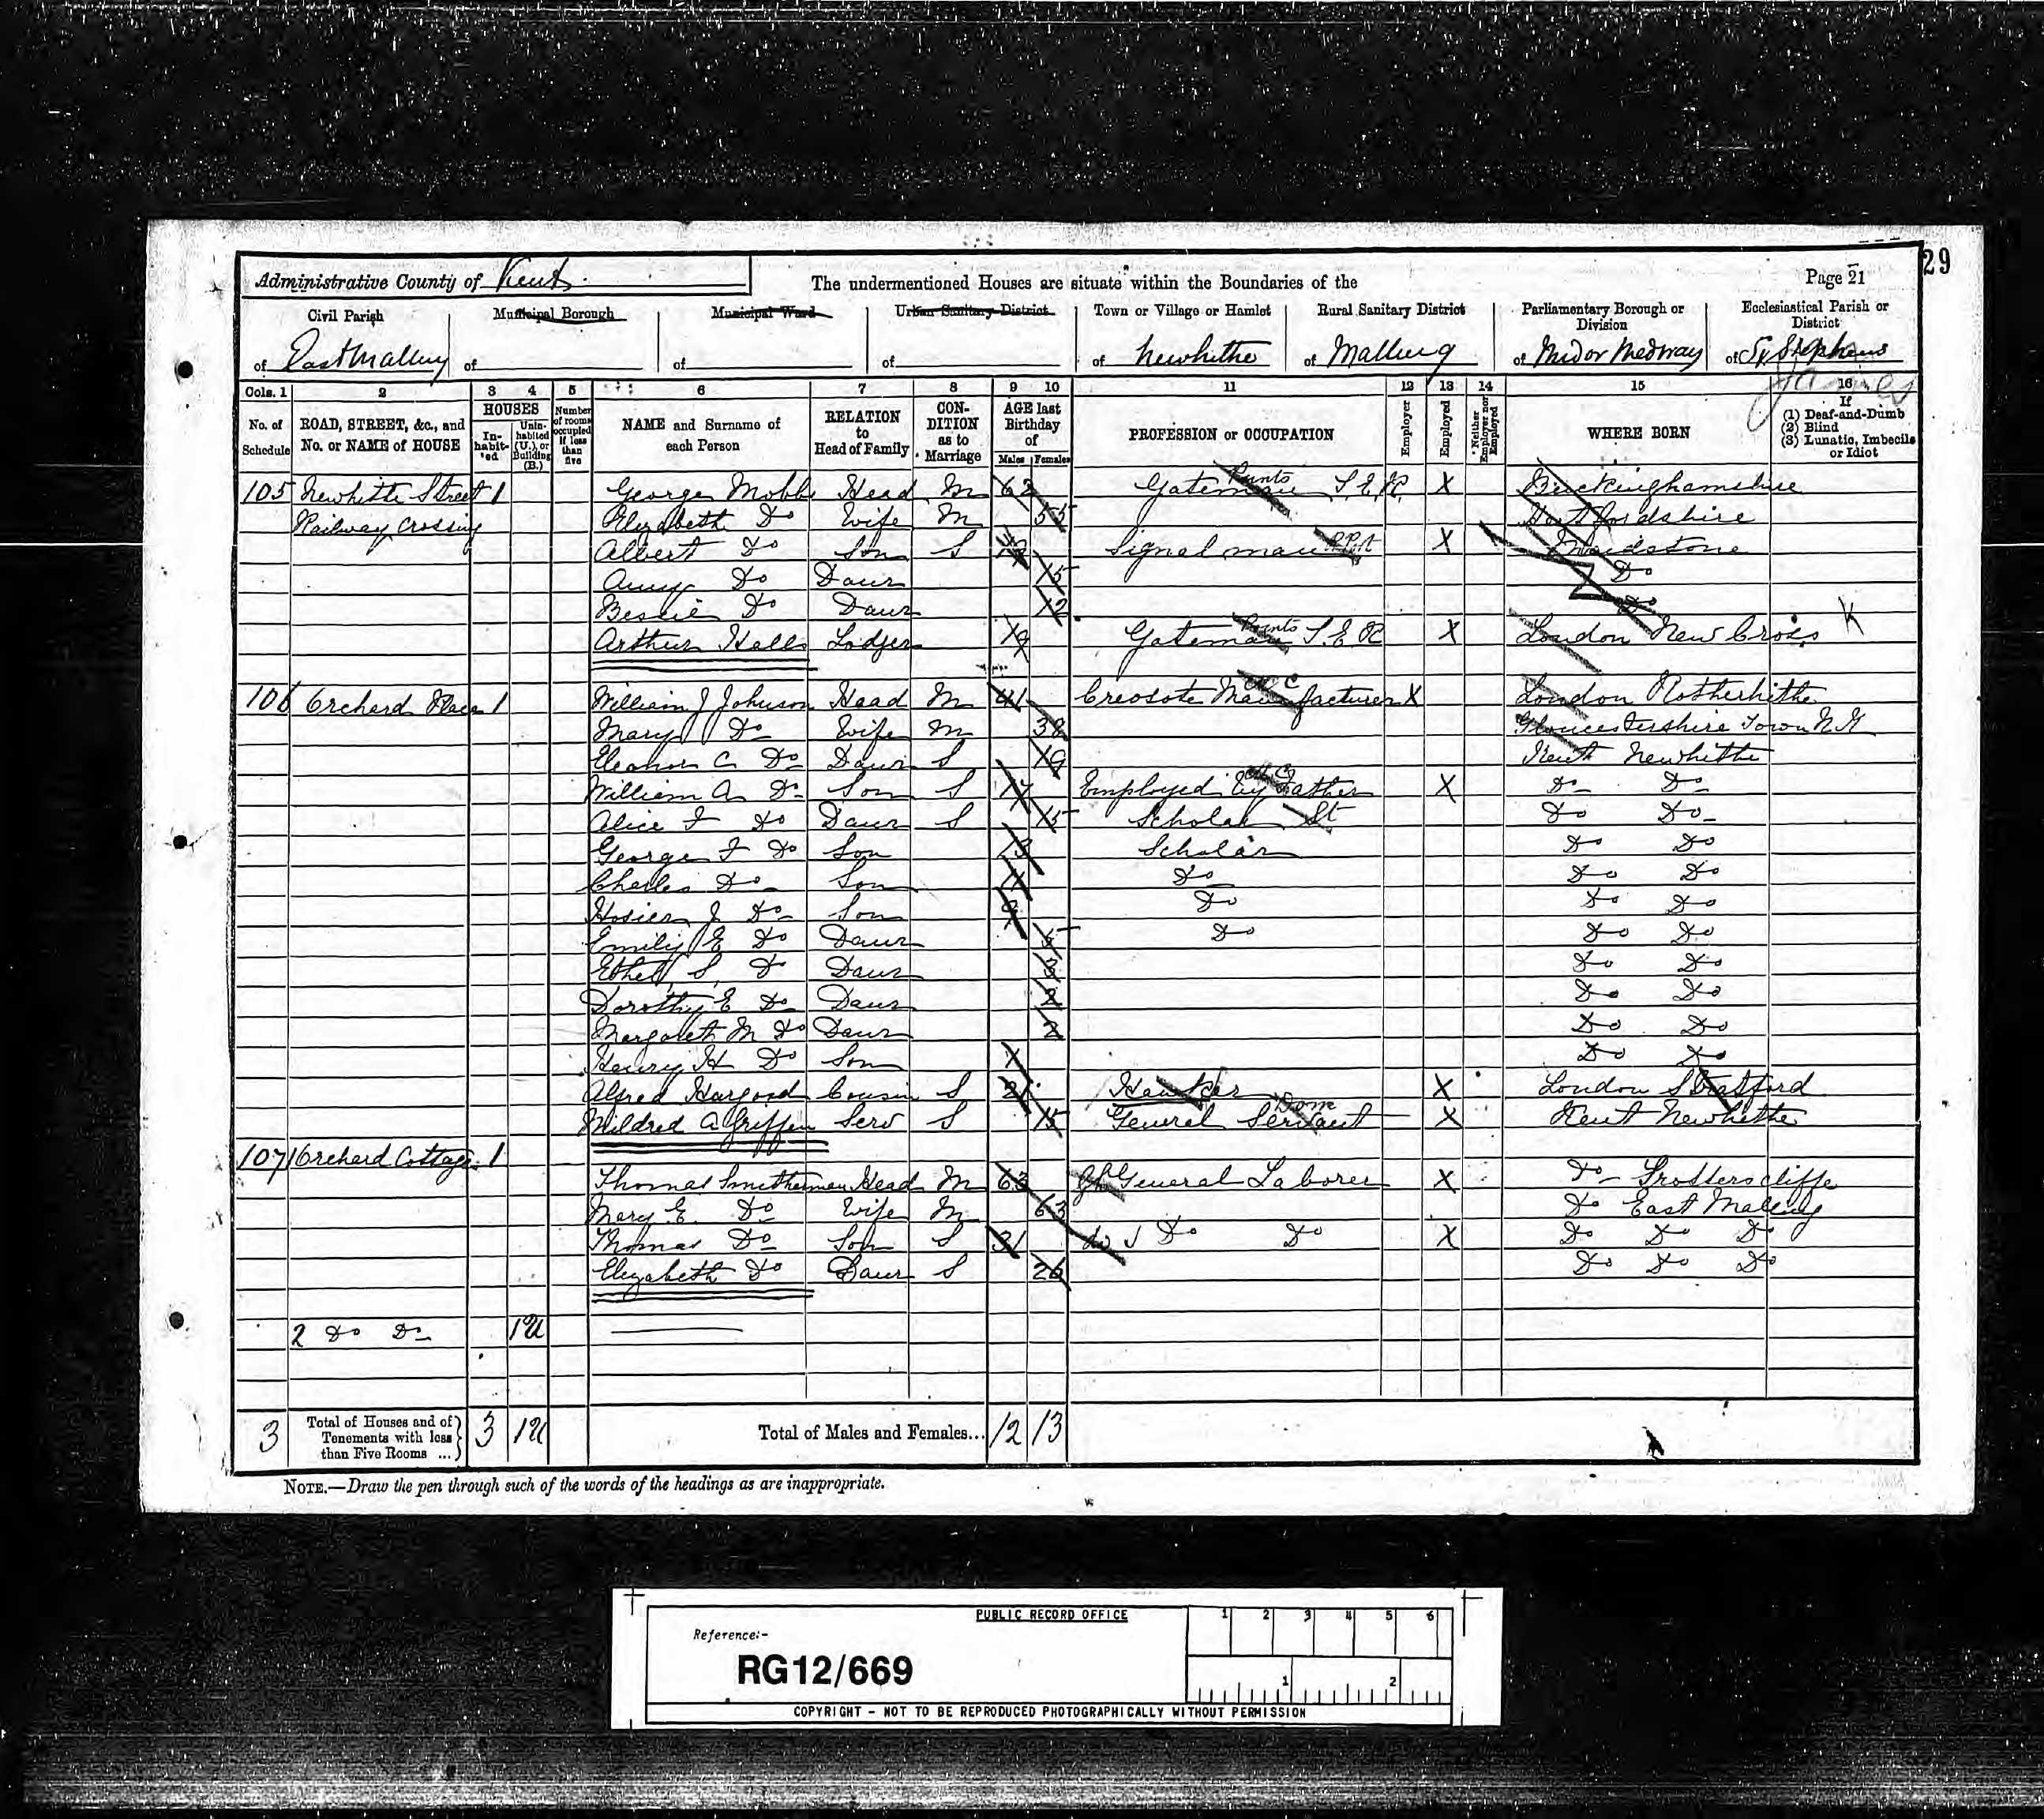 29
Administrative County of Kent
The undermentioned Houses are situate within the Boundaries of the
Page 21
Civil Parish
Municipal Borough
Municipal Ward
Urban Sanitary District
Town or Village or Hamlet
Rural Sanitary District
Parliamentary Borough or Division
Ecclesiastical Parish or District
of East Malling
of
of
of
of Newhithe
of Malling
of Mid or Medway
of St Stephens
James
Cols. 1 2 3 4 5 6 7 8 9 10 11 12 13 14 15 16
No. of Schedule
ROAD, STREET, &c., and No. or NAME of HOUSE
HOUSES
In-habit-ed
Unin-habited (U.), or Building (B.)
Number of rooms occupied if less than five
NAME and Surname of each Person
RELATION to Head of Family
CON-DITION as to Marriage
AGE last Birthday of
Males Females
PROFESSION or OCCUPATION
Employer
Employed
Neither Employer nor Employed
WHERE BORN
If
(1) Deaf-and-Dumb
(2) Blind
(3) Lunatic, Imbecile or Idiot
105 Newhithe Street 1 George Mobbs Head M 62 Gateman Points S.E.R. X Buckinghamshire
Railway Crossing Elizabeth Do Wife M 55 Hertfordshire
Albert Do Son S Signal man X Maidstone
Anny Do Daur 15 Do
Bessie Do Daur 12 Do
Arthur Halls Lodger 19 Gateman Points S.E.R X London New Cross K
106 Orchard Place 1 William J Johnson Head M 41 Creosote Manufacturer X London Rotherhithe
Mary Do Wife M 38 Gloucestershire Town N.K
Eleanor C Do Daur S 19 Kent Newhithe
William A Do Son S 17 Employed by Father X Do Do
Alice F Do Daur S 15 Scholar St Do Do
George F Do Son 13 Scholar Do Do
Charles Do Son 11 Do Do Do
Hosier J Do Son 9 Do Do Do
Emily E Do Daur 5 Do Do Do
Ethel S Do Daur 3 Do Do
Dorothy E Do Daur 2 Do Do
Margaret M Do Daur 2 Do Do
Henry H Do Son Do Do
Alfred Hargood Cousin S 21 Hawker X London Stratford
Mildred A Griffen Serv S 15 General Servant Dom X Kent Newhithe
107 Orchard Cottage 1
Thomas Smitherman Head M 63 General Laborer X Do Trotterscliffe
Mary E. Do Wife M 63 Do East Malling
Thomas Do Son S 31 Do Do X Do Do Do
Elizabeth Do Daur S 26 Do Do Do
2 Do Do 1U
3 Total of Houses and of Tenements with less than Five Rooms ... 3 1U Total of Males and Females... 12 13
NOTE.—Draw the pen through such of the words of the headings as are inappropriate.
PUBLIC RECORD OFFICE
1 2 3 4 5 6
Reference:-
RG12/669
1 2
COPYRIGHT - NOT TO BE REPRODUCED PHOTOGRAPHICALLY WITHOUT PERMISSION